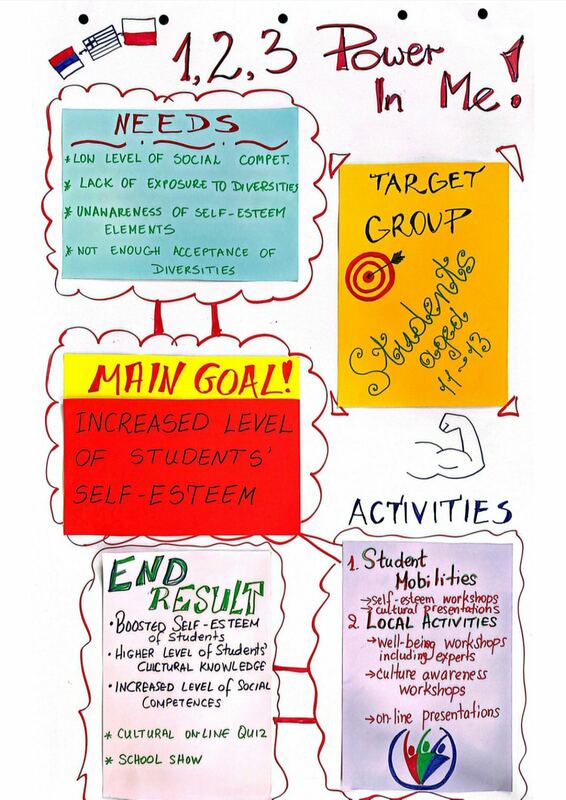 1, 2, 3 Power
In Me!
NEEDS
* LOW LEVEL OF SOCIAL COMPET.
* LACK OF EXPOSURE TO DIVERSITIES
* UNAWARENESS OF SELF-ESTEEM
ELEMENTS
* NOT ENOUGH ACCEPTANCE OF
DIVERSITIES
TARGET
GROUP
Students
aged
11-13
MAIN GOAL!
INCREASED LEVEL
OF STUDENTS'
SELF-ESTEEM
ACTIVITIES
1. Student
Mobilities
→self-esteem workshops
→cultural presentations
2. LOCAL ACTIVITIES
→well-being workshops
including experts
→culture awareness
workshops
→on-line presentations
END
RESULT
• BOOSTED SELF-ESTEEM
OF STUDENTS
• HIGHER LEVEL OF STUDENTS'
CULTURAL KNOWLEDGE
• INCREASED LEVEL OF SOCIAL
COMPETENCES
* CULTURAL ON-LINE QUIZ
* SCHOOL SHOW